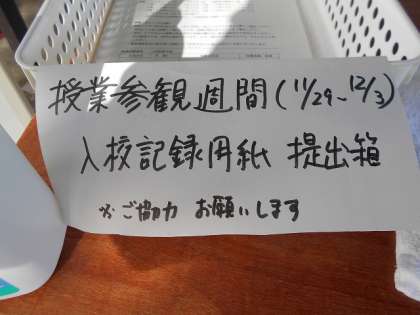 授業参観週間(11/29~12/3)
入校記録用紙 提出箱
※ご協力 お願いします